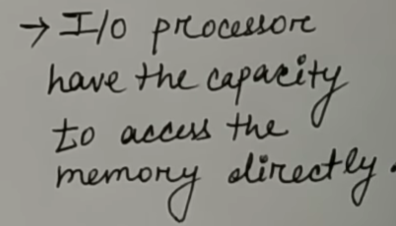 → I/O processor
have the capacity
to access the
memory directly.